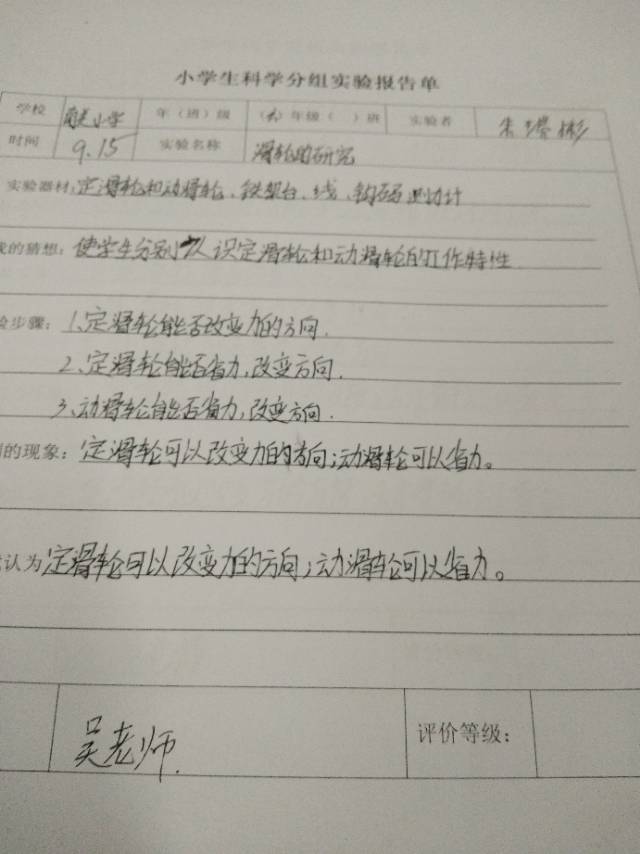 小学生科学分组实验报告单
学校 小学 年（班）级 （六）年级（ ）班 实验者 朱 彬
时间 9.15 实验名称 滑轮的研究
实验器材：定滑轮和动滑轮、铁架台、线、钩码 测力计
我的猜想：使学生分别认识定滑轮和动滑轮的工作特性
验步骤：1、定滑轮能否改变力的方向.
2、定滑轮能否省力，改变方向.
3、动滑轮能否省力，改变方向.
的现象：定滑轮可以改变力的方向；动滑轮可以省力。
认为定滑轮可以改变力的方向；动滑轮可以省力。
吴老师. 评价等级：